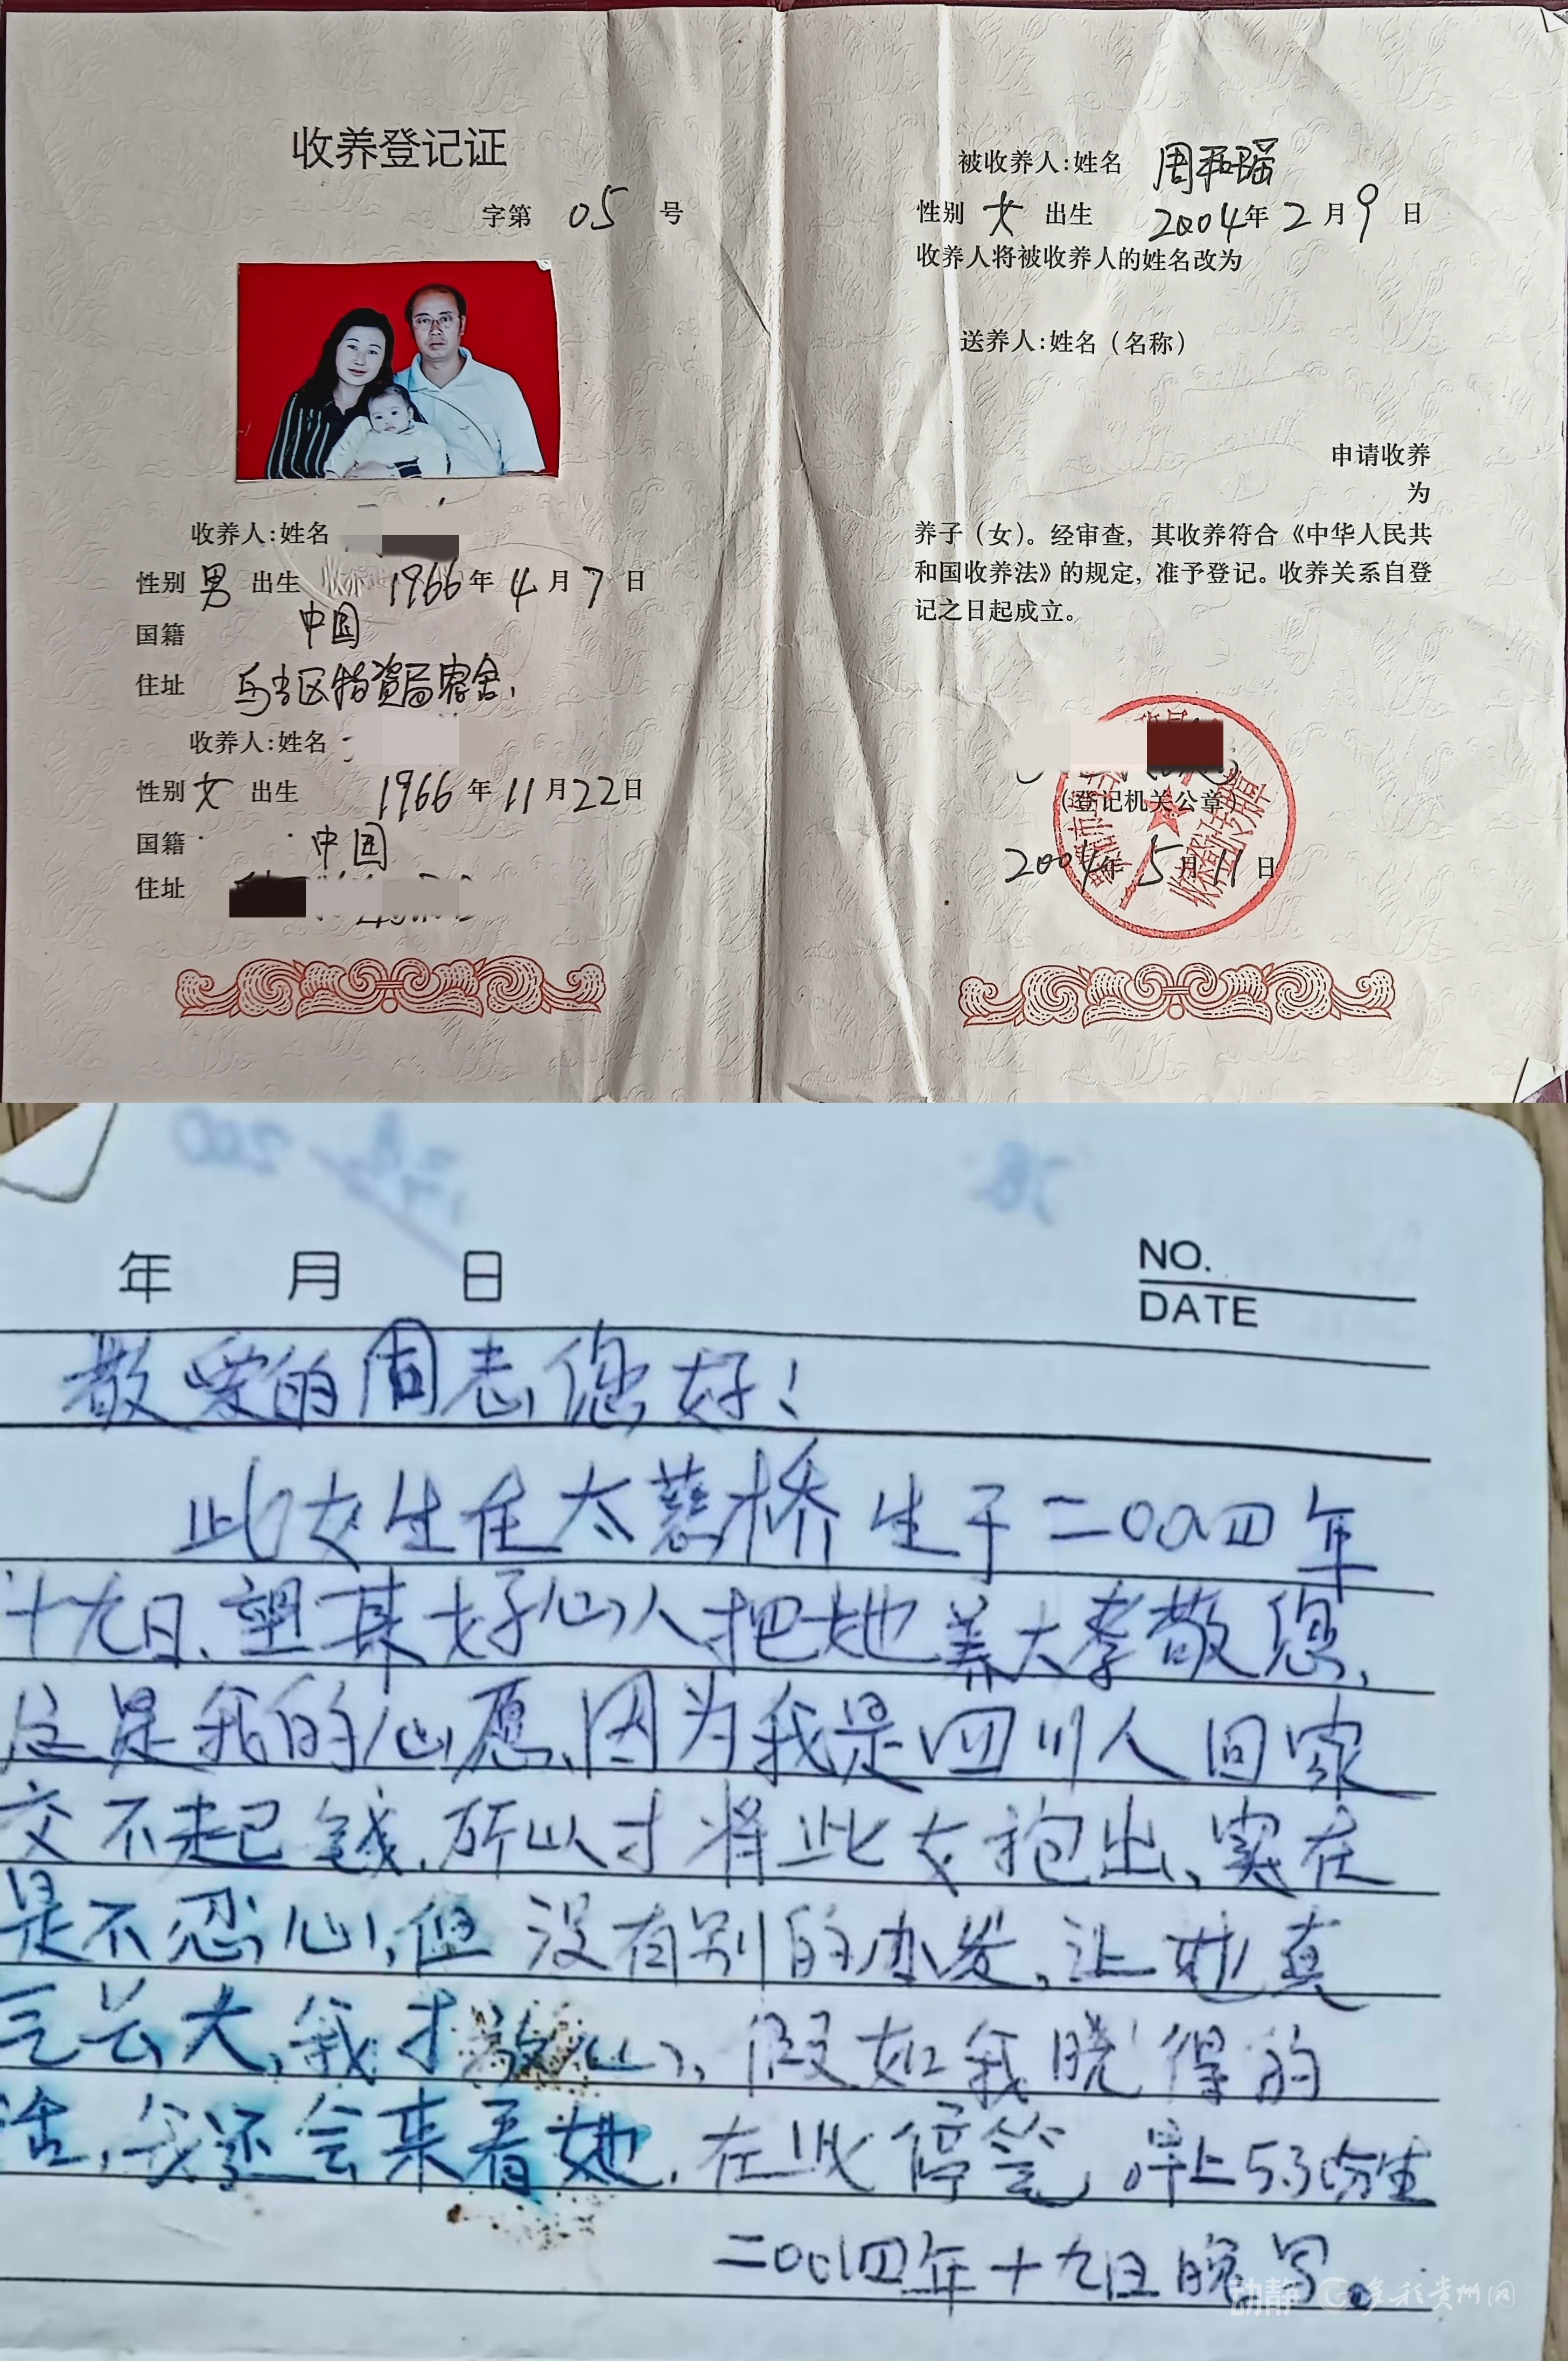 收养登记证
字第 05 号
收养人:姓名
性别 男 出生 1966年 4月 7日
国籍 中国
住址 乌当区物资局宿舍.
收养人:姓名
性别 女 出生 1966年 11月22日
国籍 中国
住址
被收养人:姓名 周和瑶
性别 女 出生 2004年 2月 9日
收养人将被收养人的姓名改为
送养人:姓名(名称)
申请收养
为
养子(女)。经审查,其收养符合《中华人民共
和国收养法》的规定,准予登记。收养关系自登
记之日起成立。
(登记机关公章)
2004年 5月 11日
年 月 日
NO.
DATE
敬爱的周志,您好!
此女生在太慈桥 生于二00四年
十九日、望某好心人把她养大孝敬您,
这是我的心愿,因为我是四川人回家
交不起钱,所以才将此女抱出、实在
是不忍心,但没有别的办发,让她真
长大,我才放心,假如我晓得的
活,我还会来看她,在此停笔,早上5.30分生
二00四年十九日晚写.
动静 多彩贵州网